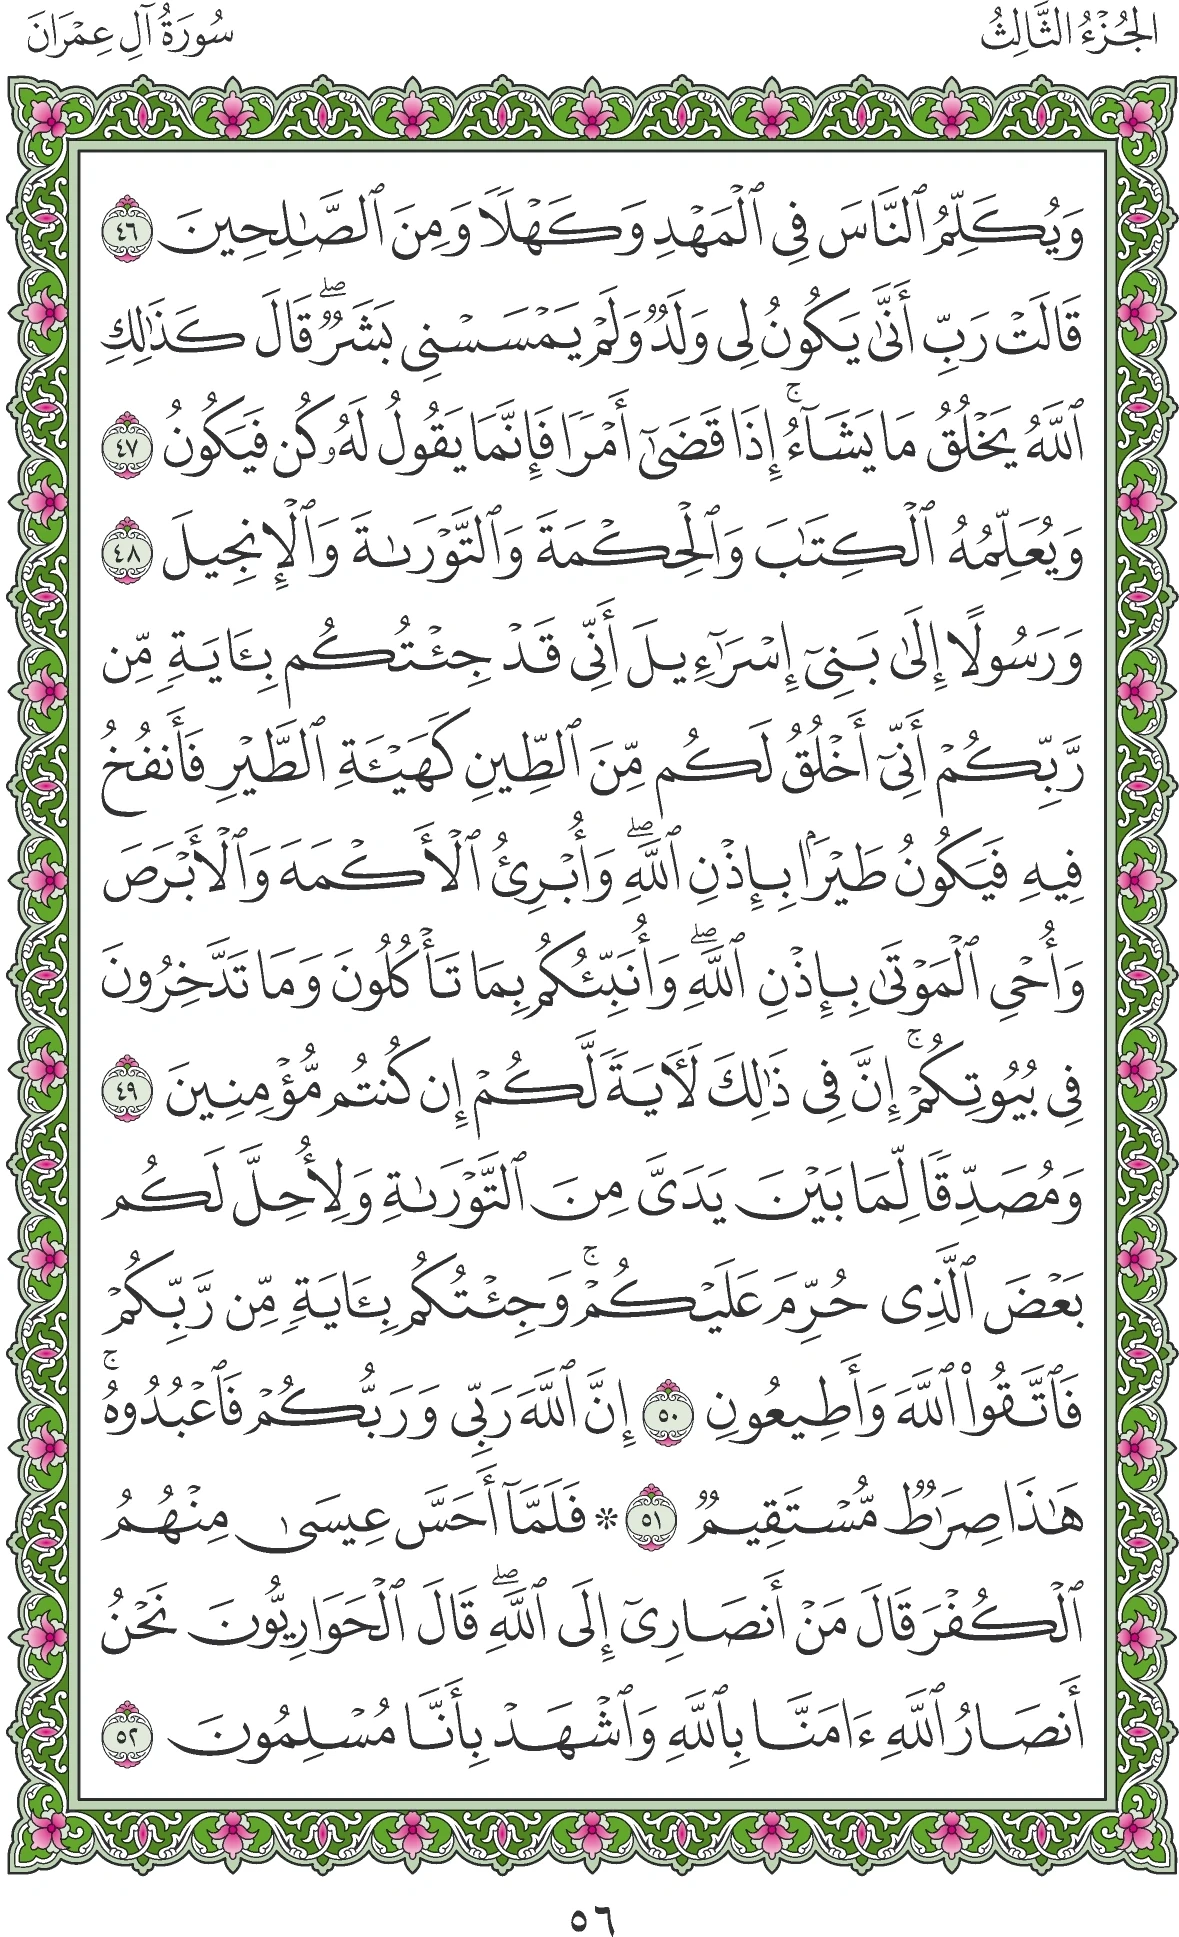 الجُزْءُ الثَّالِثُ
سُورَةُ آلِ عِمْرَانَ
وَيُكَلِّمُ ٱلنَّاسَ فِى ٱلْمَهْدِ وَكَهْلًا وَمِنَ ٱلصَّـٰلِحِينَ ٤٦
قَالَتْ رَبِّ أَنَّىٰ يَكُونُ لِى وَلَدٌ وَلَمْ يَمْسَسْنِى بَشَرٌ ۖ قَالَ كَذَٰلِكِ
ٱللَّهُ يَخْلُقُ مَا يَشَآءُ ۚ إِذَا قَضَىٰٓ أَمْرًا فَإِنَّمَا يَقُولُ لَهُۥ كُن فَيَكُونُ ٤٧
وَيُعَلِّمُهُ ٱلْكِتَـٰبَ وَٱلْحِكْمَةَ وَٱلتَّوْرَىٰةَ وَٱلْإِنجِيلَ ٤٨
وَرَسُولًا إِلَىٰ بَنِىٓ إِسْرَٰٓءِيلَ أَنِّى قَدْ جِئْتُكُم بِـَٔايَةٍ مِّن
رَّبِّكُمْ أَنِّىٓ أَخْلُقُ لَكُم مِّنَ ٱلطِّينِ كَهَيْـَٔةِ ٱلطَّيْرِ فَأَنفُخُ
فِيهِ فَيَكُونُ طَيْرًۢا بِإِذْنِ ٱللَّهِ ۖ وَأُبْرِئُ ٱلْأَكْمَهَ وَٱلْأَبْرَصَ
وَأُحْىِ ٱلْمَوْتَىٰ بِإِذْنِ ٱللَّهِ ۖ وَأُنَبِّئُكُم بِمَا تَأْكُلُونَ وَمَا تَدَّخِرُونَ
فِى بُيُوتِكُمْ ۚ إِنَّ فِى ذَٰلِكَ لَـَٔايَةً لَّكُمْ إِن كُنتُم مُّؤْمِنِينَ ٤٩
وَمُصَدِّقًا لِّمَا بَيْنَ يَدَىَّ مِنَ ٱلتَّوْرَىٰةِ وَلِأُحِلَّ لَكُم
بَعْضَ ٱلَّذِى حُرِّمَ عَلَيْكُمْ ۚ وَجِئْتُكُم بِـَٔايَةٍ مِّن رَّبِّكُمْ
فَٱتَّقُوا۟ ٱللَّهَ وَأَطِيعُونِ ٥٠ إِنَّ ٱللَّهَ رَبِّى وَرَبُّكُمْ فَٱعْبُدُوهُ ۚ
هَـٰذَا صِرَٰطٌ مُّسْتَقِيمٌ ٥١ ۞ فَلَمَّآ أَحَسَّ عِيسَىٰ مِنْهُمُ
ٱلْكُفْرَ قَالَ مَنْ أَنصَارِىٓ إِلَى ٱللَّهِ ۖ قَالَ ٱلْحَوَارِيُّونَ نَحْنُ
أَنصَارُ ٱللَّهِ ءَامَنَّا بِٱللَّهِ وَٱشْهَدْ بِأَنَّا مُسْلِمُونَ ٥٢
٥٦